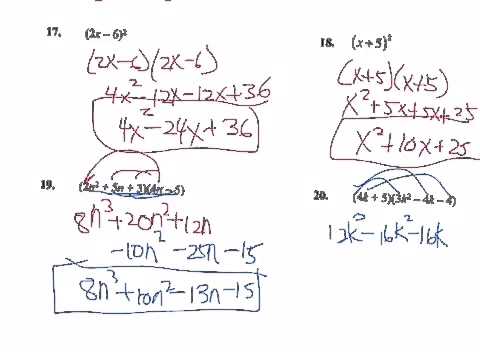 17. (2x – 6)²
(2x-6)(2x-6)
4x²-12x-12x+36
4x²-24x+36
18. (x + 5)²
(x+5)(x+5)
x²+5x+5x+25
x²+10x+25
19. (2n² + 5n + 3)(4n – 5)
8n³+20n²+12n
-10n²-25n-15
8n³+10n²-13n-15
20. (4k + 5)(3k² – 4k – 4)
12k³-16k²-16k